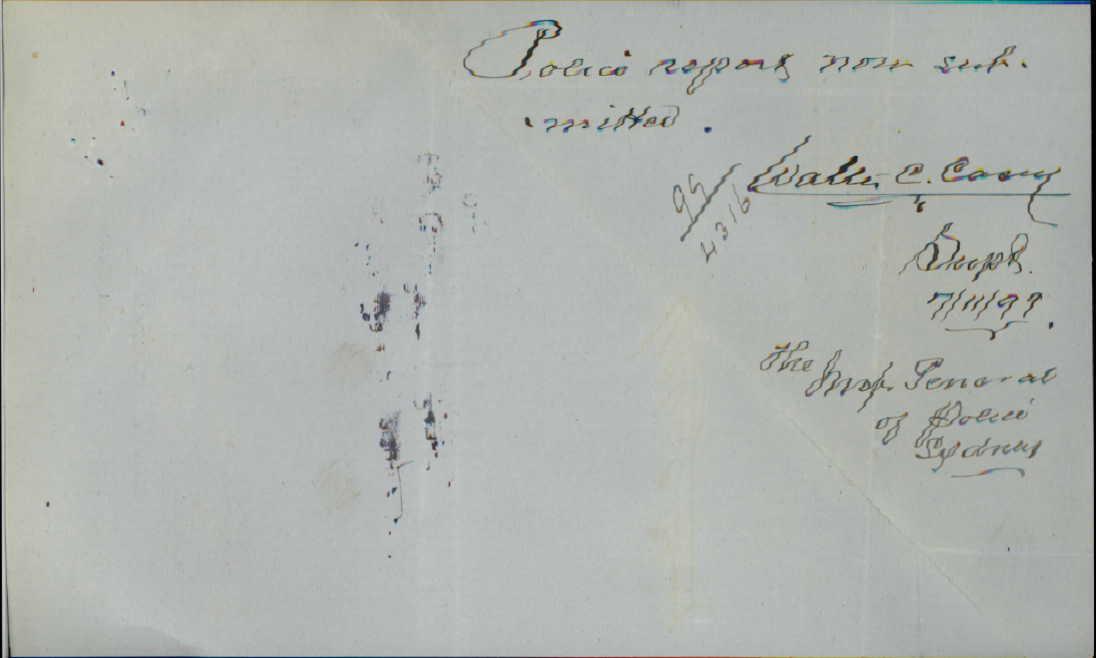 Police report now sub-
mitted.
Walter C. Casey
95/4316
Supt.
7/11/99.
The Insp. General
of Police
Sydney